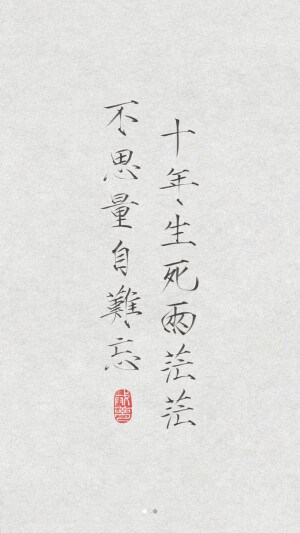 十年生死兩茫茫
不思量自難忘